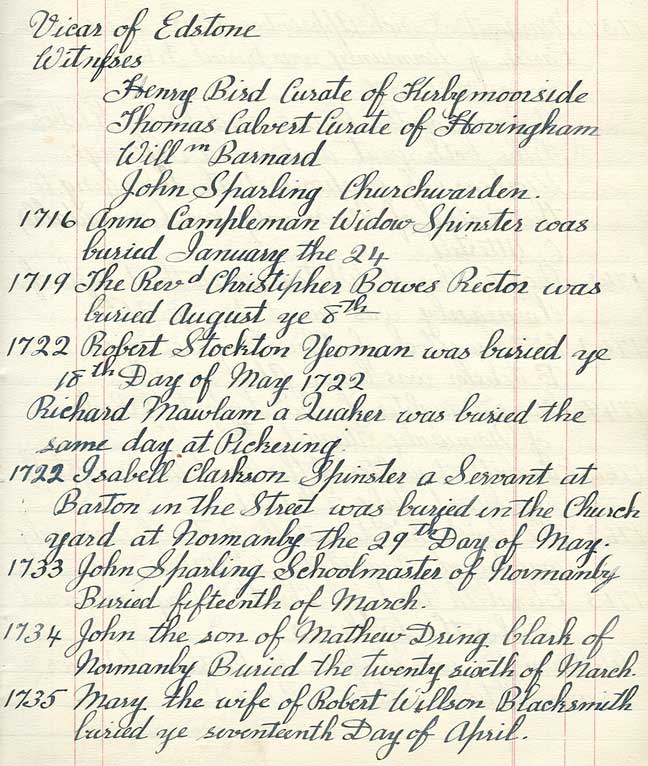 Vicar of Edstone
Witnesses
Henry Bird Curate of Kirbymoorside
Thomas Calvert Curate of Hovingham
Will m Barnard
John Sparling Churchwarden.
1716 Anno Campleman Widow Spinster was
buried January the 24
1719 The Revd Christipher Bowes Rector was
buried August ye 8th
1722 Robert Stockton Yeoman was buried ye
18th Day of May 1722
Richard Mawlam a Quaker was buried the
same day at Pickering.
1722 Isabell Clarkson Spinster a Servant at
Barton in the Street was buried in the Church
yard at Normanby the 29th Day of May.
1733 John Sparling Schoolmaster of Normanby
Buried fifteenth of March.
1734 John the son of Mathew Dring Clark of
Normanby Buried the twenty sixth of March.
1735 Mary the wife of Robert Willson Blacksmith
buried ye seventeenth Day of April.